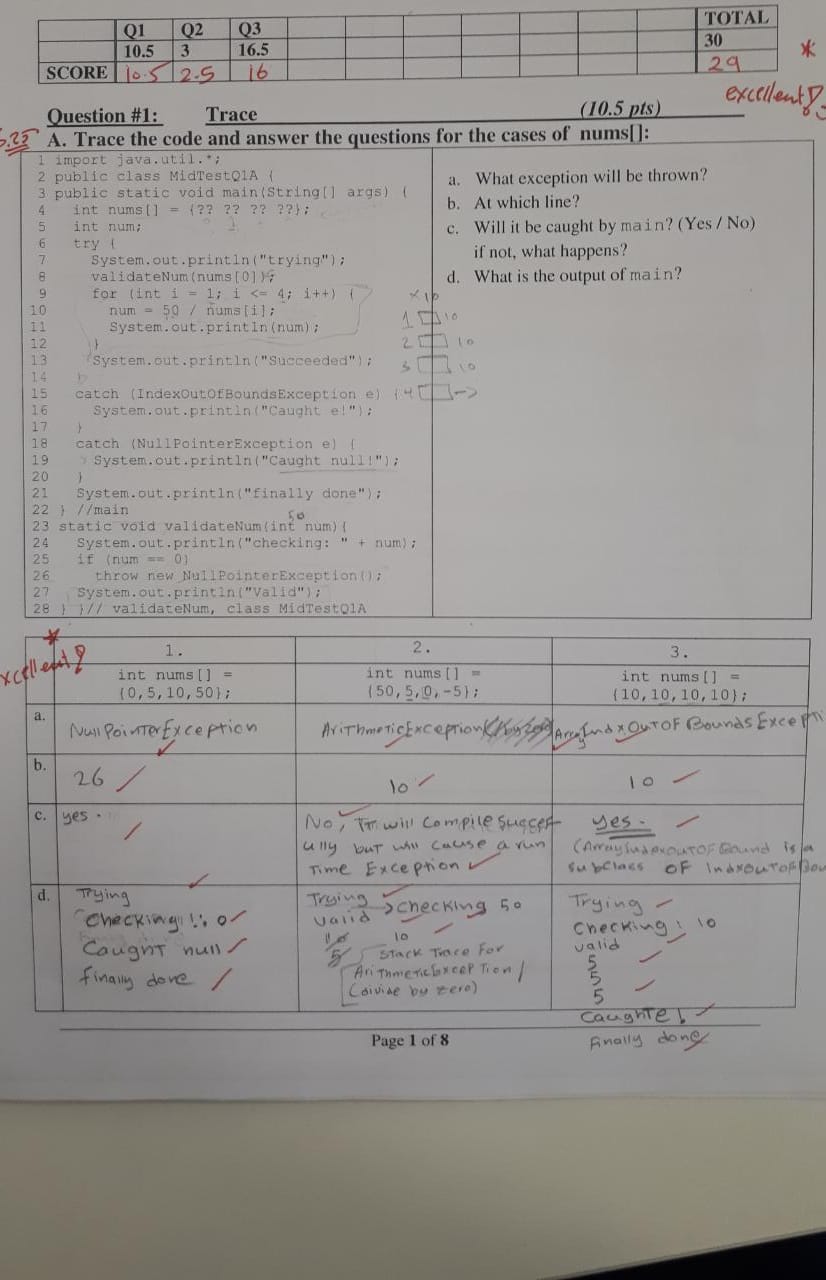 Q1 Q2 Q3 TOTAL
10.5 3 16.5 30
SCORE 10.5 2.5 16 29
excellent
Question #1: Trace (10.5 pts)
A. Trace the code and answer the questions for the cases of nums[]:
1 import java.util.*;
2 public class MidTestQ1A {
3 public static void main(String[] args) {
4 int nums[] = {?? ?? ?? ??};
5 int num;
6 try {
7 System.out.println("trying");
8 validateNum(nums[0]);
9 for (int i = 1; i <= 4; i++) {
10 num = 50 / nums[i];
11 System.out.println(num);
12 }
13 System.out.println("Succeeded");
14 }
15 catch (IndexOutOfBoundsException e) {
16 System.out.println("Caught e!");
17 }
18 catch (NullPointerException e) {
19 System.out.println("Caught null!");
20 }
21 System.out.println("finally done");
22 } //main
50
23 static void validateNum(int num){
24 System.out.println("checking: " + num);
25 if (num == 0)
26 throw new NullPointerException();
27 System.out.println("Valid");
28 } }// validateNum, class MidTestQ1A
a. What exception will be thrown?
b. At which line?
c. Will it be caught by main? (Yes / No)
if not, what happens?
d. What is the output of main?
1 10
2 10
3 10
4 ->
excellent
1. 2. 3.
int nums[] = int nums[] = int nums[] =
{0,5,10,50}; {50,5,0,-5}; {10,10,10,10};
a. NullPointerException
ArithmeticException
ArrayIndxOutOF Bounds Excepti
b. 26 10 10
c. yes.
No, IT will compile succesf
ully but will cause a run
Time Exception
yes-
(ArrayIndexOUTOFBound is a
subclass OF IndxoutofBou
d. Trying
Checking!: 0
Caught null
finally done
Trying -> checking 50
valid
10
5
Stack Trace For
ArithmeticException
(divide by zero)
Trying
Checking: 10
valid
5
5
5
Caughte!
Finally done
Page 1 of 8